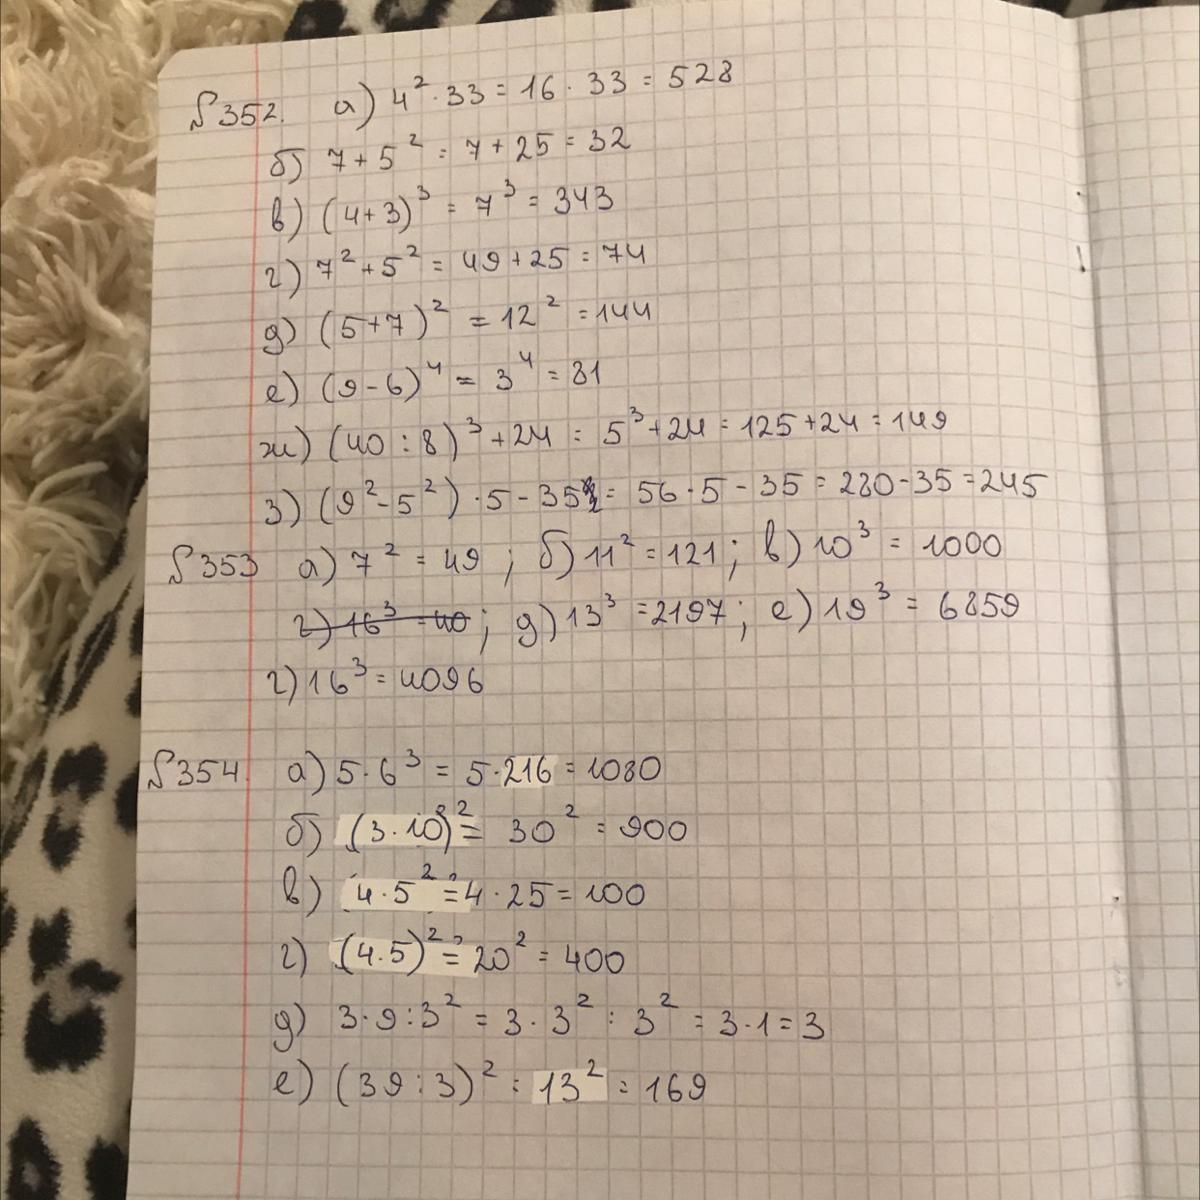 №352. а) 4² · 33 = 16 · 33 = 528
б) 7 + 5² = 7 + 25 = 32
в) (4+3)³ = 7³ = 343
г) 7² + 5² = 49 + 25 = 74
д) (5+7)² = 12² = 144
е) (9-6)⁴ = 3⁴ = 81
ж) (40 : 8)³ + 24 = 5³ + 24 = 125 + 24 = 149
з) (9² - 5²) · 5 - 35 = 56 · 5 - 35 = 280 - 35 = 245
№353 а) 7² = 49 ; б) 11² = 121 ; в) 10³ = 1000
г) 16³ = 40 ; д) 13³ = 2197 ; е) 19³ = 6859
г) 16³ = 4096
№354. а) 5 · 6³ = 5 · 216 = 1080
б) (3 · 10)² = 30² = 900
в) 4 · 5² = 4 · 25 = 100
г) (4 · 5)² = 20² = 400
д) 3 · 9 : 3² = 3 · 3² : 3² = 3 · 1 = 3
е) (39 : 3)² = 13² = 169